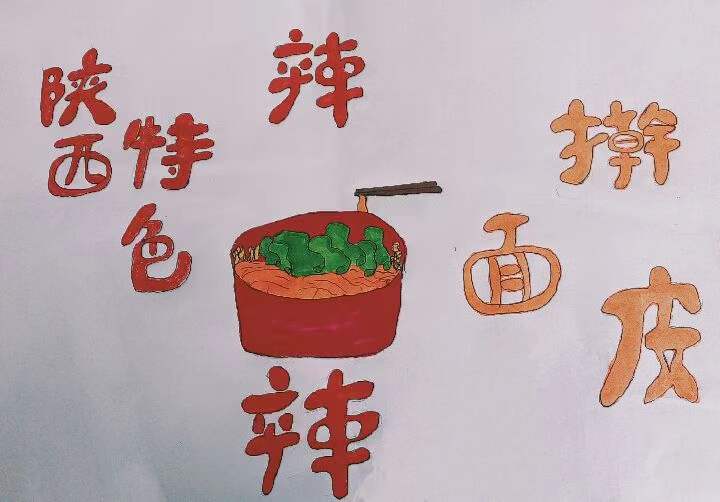 陕西
特色
辣
辣
擀
面
皮